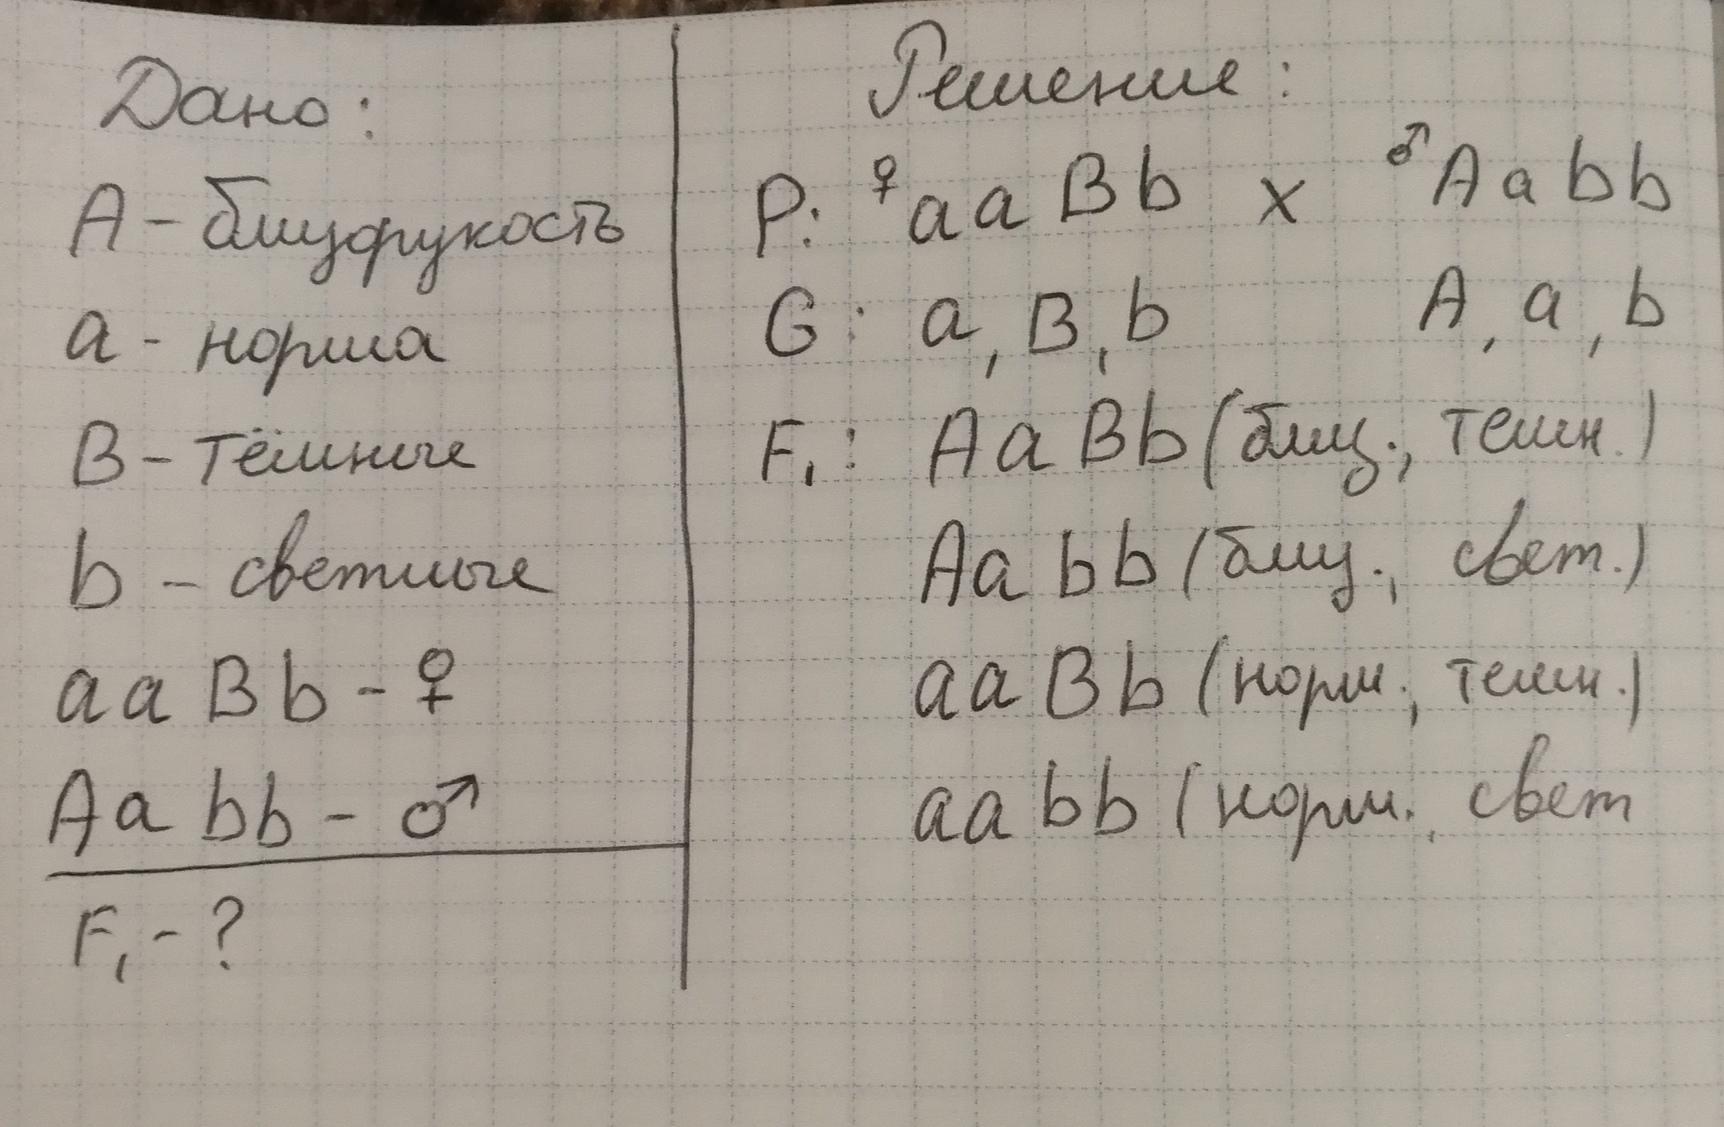 Дано:
А - близорукость
а - норма
В - тёмные
b - светлые
aa Bb - ♀
Aa bb - ♂
F₁ - ?
Решение:
P: ♀ aa Bb x ♂ Aa bb
G: a, B, b A, a, b
F₁: Aa Bb (близ., темн.)
Aa bb (близ., свет.)
aa Bb (норм., темн.)
aa bb (норм., свет